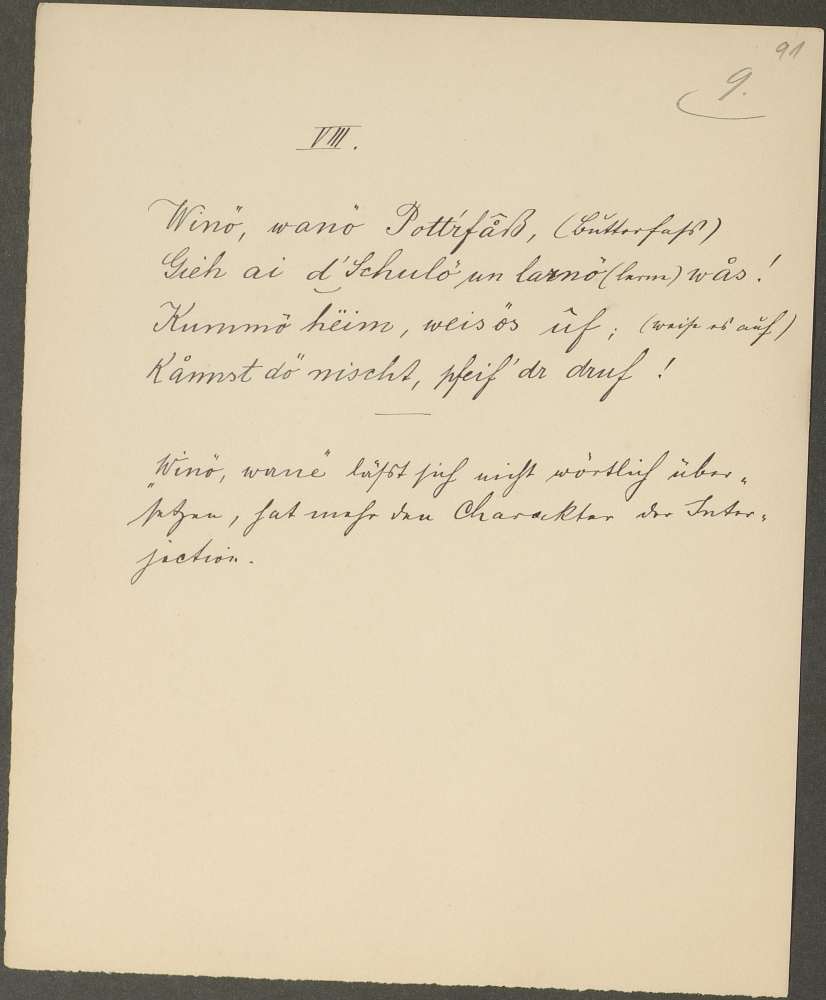 91
9.
VIII.
Winö, wanö Pottrfåß, (Butterfaß)
Gieh ai d'Schulö un larnö (lerne) wås!
Kummö hëim, weis ös ûf; (weise es auf)
Kånnst dö nischt, pfeif' dr druf!
„Winö, wane" läßt sich nicht wörtlich über-
setzen, hat mehr den Charakter der Inter-
jection.